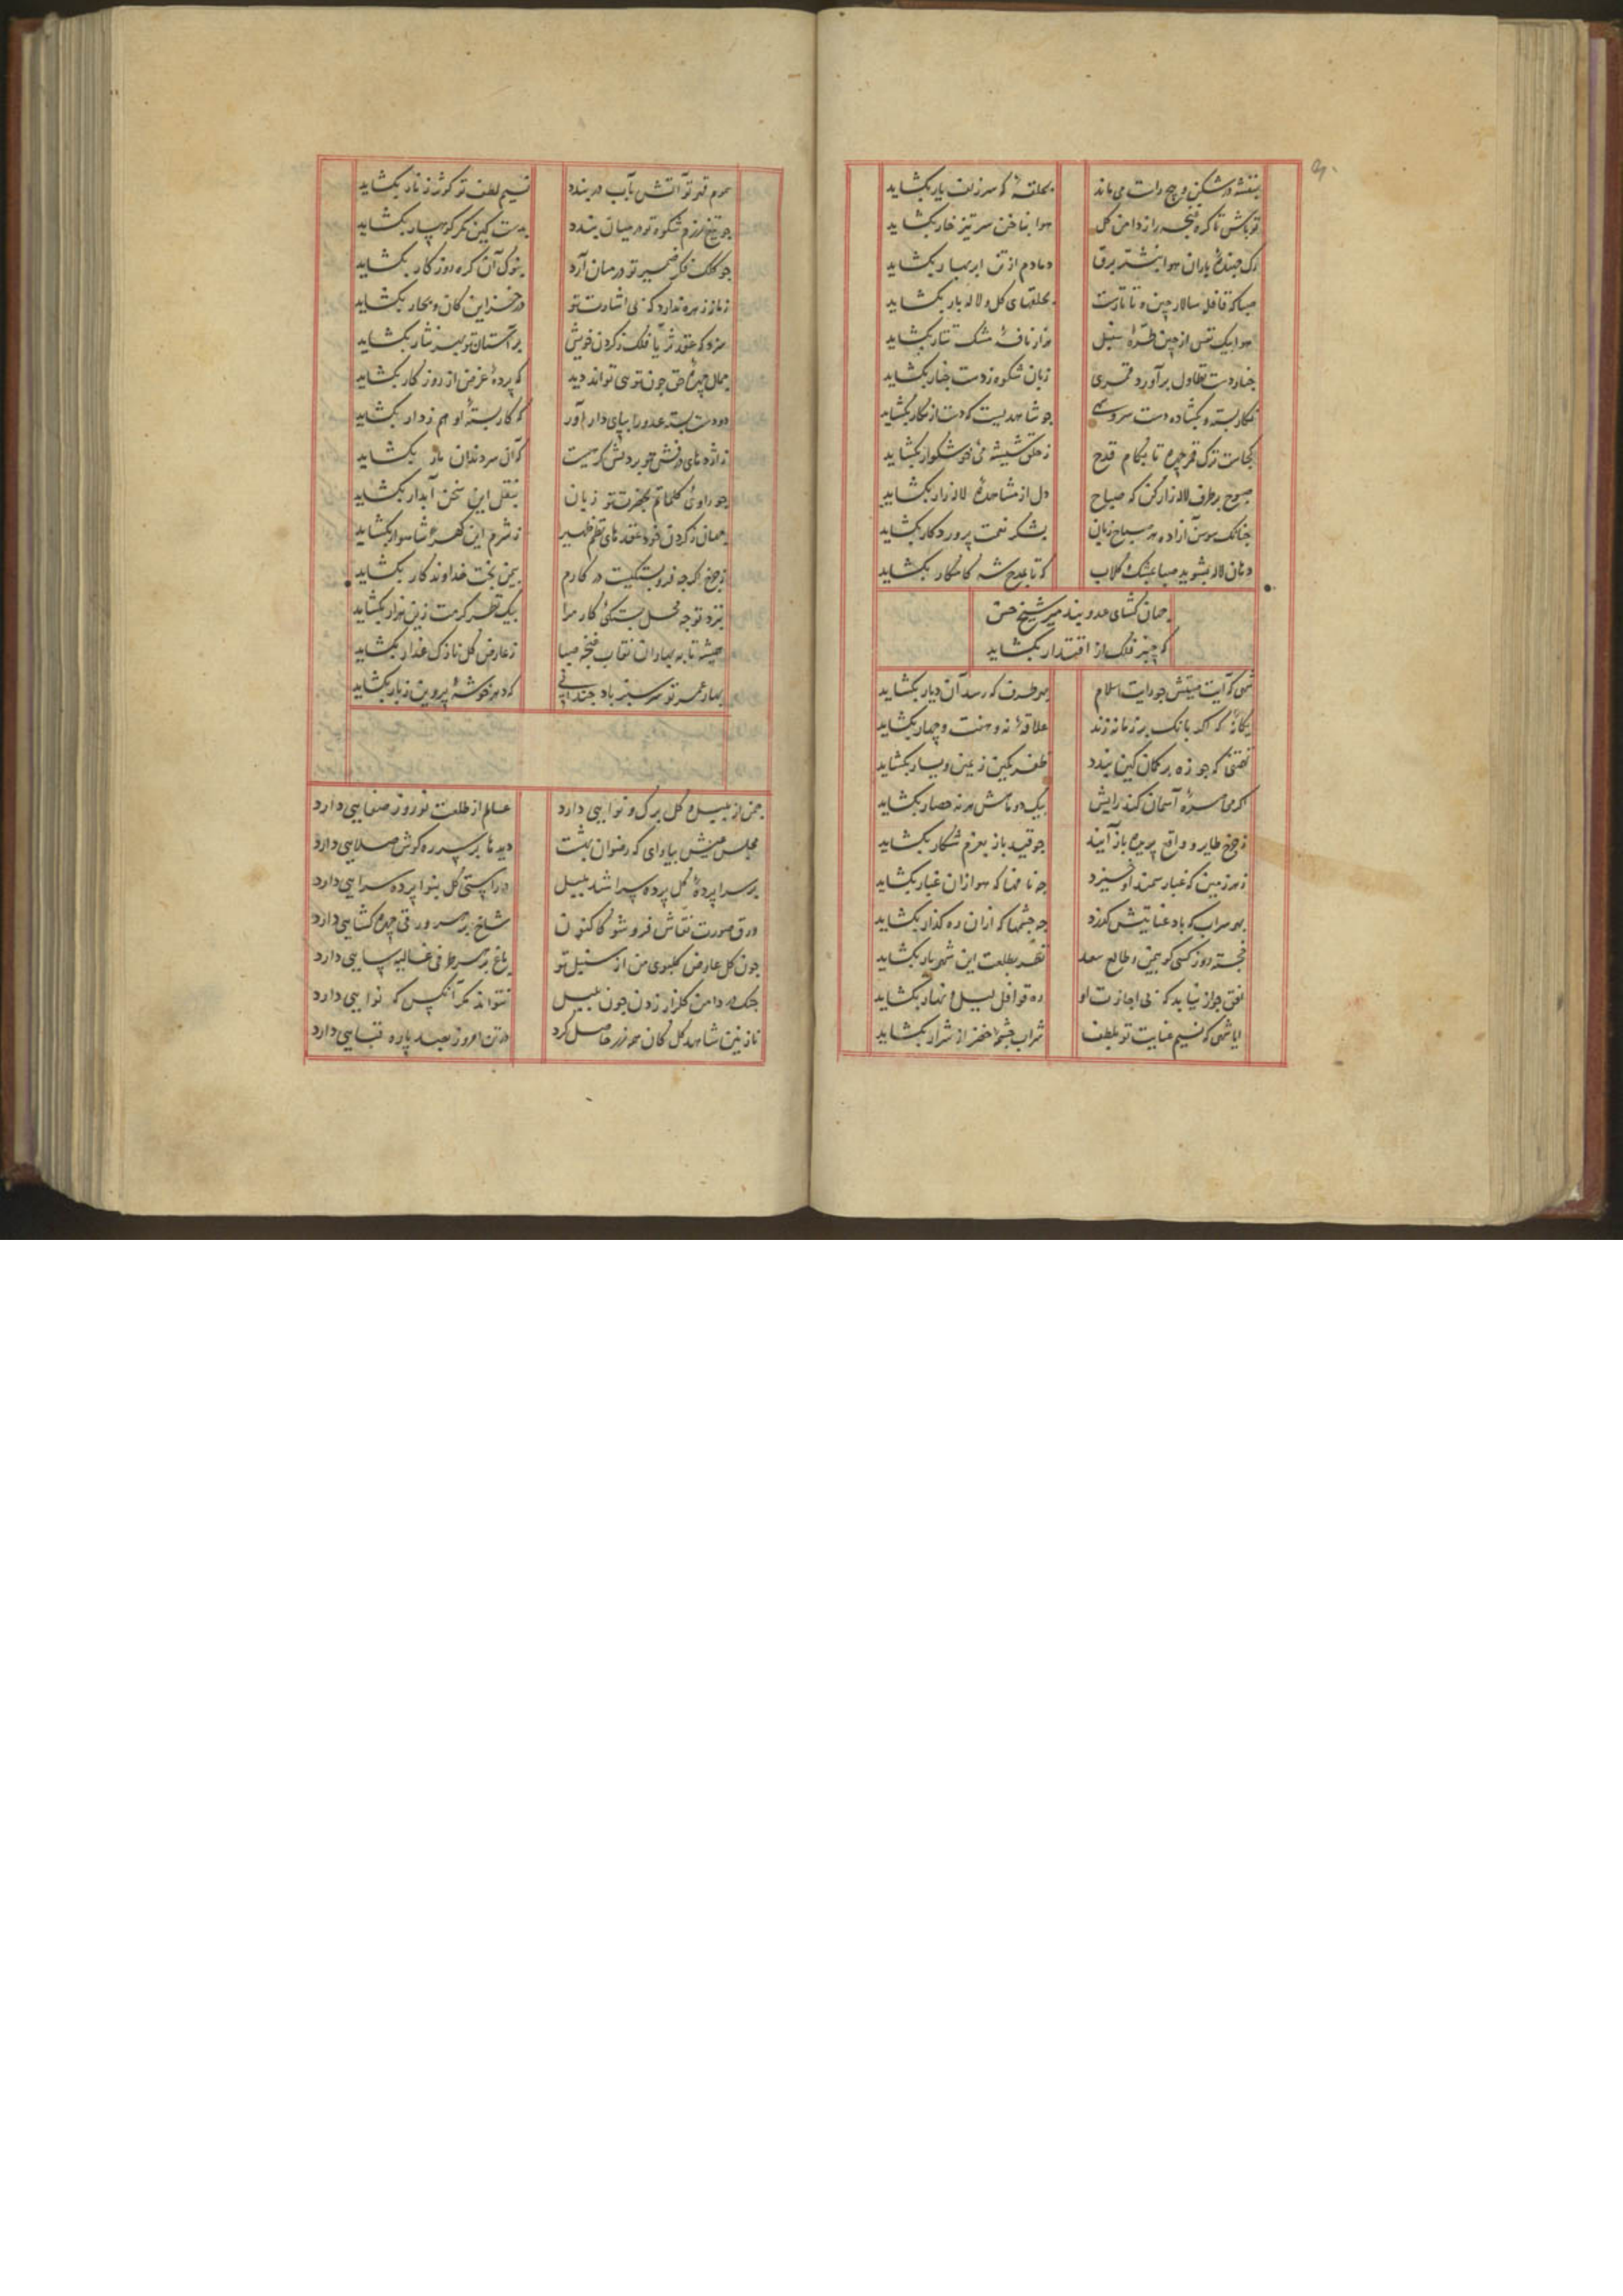 بنفشه در شکن و پیچ راست می ماند بحلقهٔ که سر زلف یار بکشاید
تو باش تا کره غنچه را ز دامن کل هوا بناخن سر تیز خار بکشاید
رک جهندهٔ باران هوا بنشتر برق دمادم از تن ابر بهار بکشاید
صبا که قافله سالار چین و تاتارست بحلقهای کل و لاله بار بکشاید
هوا بیک نفس از چین طرهٔ سنبل هزار نافهٔ مشک تتار بکشاید
چنار دست تطاول برآورد قمری زبان شکوه ز دست چنار بکشاید
نکار بسته و بکشاده دست سرو سهی چو شاهدیست که دست از نکار بکشاید
کجاست ترک قمر چهره تا بکام قدح ز حلق شیشه می خوشکوار بکشاید
صبوح بر طرف لاله زار کن که صباح دل از مشاهدهٔ لاله زار بکشاید
چنانک سوسن آزاده هر صباح زبان بشکر نعمت پروردکار بکشاید
دهان لاله بشوید صبا بمشک و کلاب که تا بمدح شه کامکار بکشاید
جهان کشای عدو بند میر شیخ حسن
که چنبر فلک از اقتدار بکشاید
شهی که آیت تیغش چو رایت اسلام بهر طرف که رسد آن دیار بکشاید
یکانهٔ که اکر بانک بر زمانه زند علاقهٔ نه و هفت و چهار بکشاید
تهمتنی که چو زه بر کمان کین بندد ظفر کمین ز یمین و یسار بکشاید
اکر محاصرهٔ آسمان کند رایش بیک دو ماهش هر نه حصار بکشاید
ز چرخ طایر و واقع بزیر باز آیند چو قید باز بعزم شکار بکشاید
ز هر زمین که غبار سمند او خیزد چو نافها که هوا زان غبار بکشاید
بهر سراب که باد عنایتش کذرد چو چشمها که ازان ره کذار بکشاید
خجسته روز کسی کو بیمن و طالع سعد نظر بطلعت این شهریار بکشاید
افق جواز نیابد که بی اجازت او ره قوافل لیل و نهار بکشاید
ایا شهی که نسیم عنایت تو بلطف شراب چشمهٔ خضر از شرار بکشاید
سموم قهر تو آتش بآب در بندد نسیم لطف تو کوثر ز نار بکشاید
چو تیغ رزم شکوه تو در میان بندد بدست کین کمر کوهسار بکشاید
چو کلک فکر ضمیر تو در میان آرد بنوک آن کره روزکار بکشاید
زمانه زهره ندارد که بی اشارت تو در خزاین کان و بحار بکشاید
سزد که عقد ثریا فلک ز کردن خویش بر آستان تو بهر نثار بکشاید
جمال چهرهٔ حق چون توی تواند دید که پردهٔ غرض از روز کار بکشاید
دو دست بسته عدو را بپای دار آور که کار بستهٔ او هم ز دار بکشاید
چو راوی کلماتم بحضرت تو زبان بنقل این سخن آبدار بکشاید
جهان ز کردن خود عقدهای نظم ظهیر ز شرم این کهر شاهوار بکشاید
ز چرخ اکرچه فروبستکیست در کارم بیمن بخت خداوندکار بکشاید
بنزد تو چه محل بستکی کار مرا بیک نظر کرمت زین هزار بکشاید
همیشه تا به بهاران نقاب غنچه صبا ز عارض کل نازک عذار بکشاید
بهار عمر تو سرسبز باد چندانی که دهر خوشهٔ پروین ز بار بکشاید
چمن از بلبل و کل برک و نوایی دارد عالم از طلعت نوروز صفایی دارد
مجلس عیش بیارای که رضوان بهشت دیدها بر سر ره کوش صلایی دارد
بر سراپردهٔ کل پرده سرا شد بلبل راستی کل بنوا پرده سرایی دارد
ورق صورت نقاش فرو شو کاکنون شاخ بر هر ورقی چهره کشایی دارد
چون کل عارض کلبوی من از سنبل تو باغ بر هر طرفی غالیه سایی دارد
چنک در دامن کلزار زدن چون بلبل نتواند مکر آنکس که نوایی دارد
نازنین شاهد کل کان همه زر حاصل کرد در تن امروز بصد پاره قبایی دارد